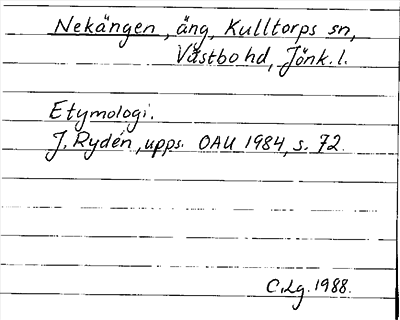 Nekängen, äng, Kulltorps sn,
Västbo hd, Jönk. l.
Etymologi.
J. Rydén, upps. OAU 1984, s. 72.
C.Lg. 1988.